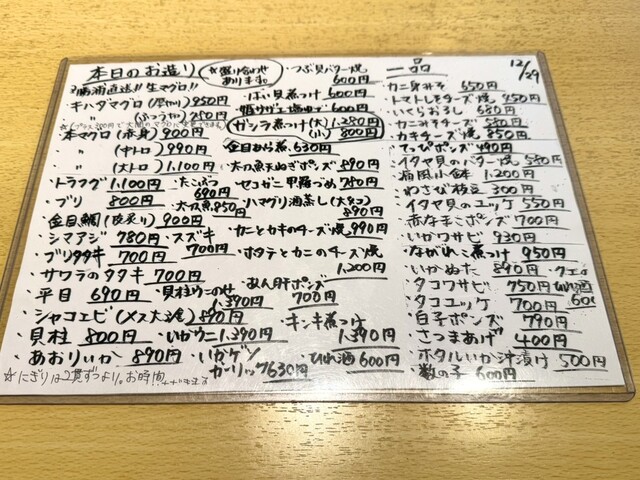 本日のお造り
☆盛り合わせあります。
勝浦直送!!生マグロ!!
・キハダマグロ(厚切り)950円
〃(ふつう)750円
・本マグロ(赤身)900円
〃(中トロ)990円
〃(大トロ)1,100円
・トラフグ 1,100円
・たこぶつ690円
・ブリ 800円
・太刀魚850円
・金目鯛(皮炙り)900円
・シマアジ 780円
・スズキ700円
・ブリタタキ 700円
・サワラのタタキ 700円
・平目 690円
・貝柱ウニのせ1,390円
・シャコエビ(メス大)890円
・貝柱 800円
・いかウニ1,390円
・あおりいか 890円
・いかゲソガーリック630円
☆にぎりは2貫ずつより。お時間
・つぶ貝バター焼600円
・ばい貝煮つけ600円
・姫サザエ塩ゆで600円
・ガシラ煮つけ(大)1,280円
(小)800円
・金目あら煮 630円
・太刀魚天ねぎポンズ890円
・セコガニ甲羅づめ780円
・ハマグリ酒蒸し(大2コ)890円
・カニとカキのチーズ焼990円
・ホタテとカニのチーズ焼1,200円
・あん肝ポンズ700円
・キンキ煮つけ1,390円
・ひれ酒600円
一品
12/29
・カニ身みそ 650円
・トマトしそチーズ焼 450円
・いくらおろし 680円
・カニみそチーズ 580円
・カキチーズ焼 850円
・てっぴポンズ 490円
・イタヤ貝のバター焼 580円
・痛風小鉢 1,200円
・わさび枝豆 300円
・イタヤ貝のユッケ 550円
・赤なまこポンズ 700円
・いかワサビ 930円
・ながれこ煮つけ 950円
・いかぬた 890円
・クエひれ酒600
・タコワサビ 750円
・タコユッケ 700円
・白子ポンズ 790円
・さつまあげ 400円
・ホタルいか汁漬け 500円
・数の子 600円